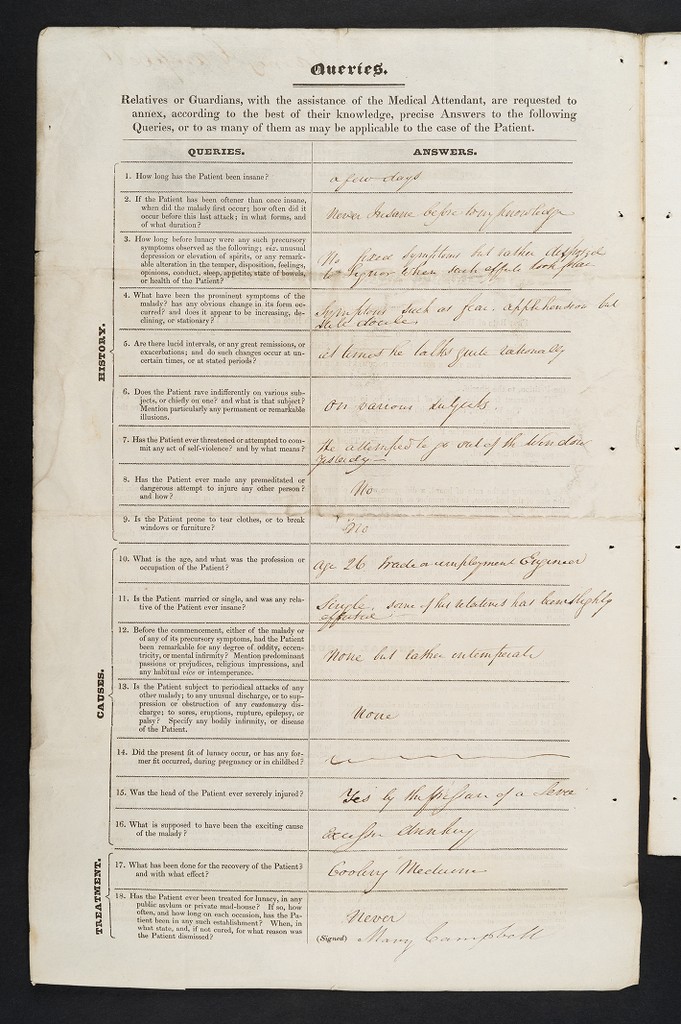 Queries.
Relatives or Guardians, with the assistance of the Medical Attendant, are requested to
annex, according to the best of their knowledge, precise Answers to the following
Queries, or to as many of them as may be applicable to the case of the Patient.
QUERIES.
ANSWERS.
HISTORY.
1. How long has the Patient been insane?
a few days
2. If the Patient has been oftener than once insane,
when did the malady first occur; how often did it
occur before this last attack; in what forms, and
of what duration?
Never Insane before to my knowledge
3. How long before lunacy were any such precursory
symptoms observed as the following; viz. unusual
depression or elevation of spirits, or any remark-
able alteration in the temper, disposition, feelings,
opinions, conduct, sleep, appetite, state of bowels,
or health of the Patient?
No fixed Symptoms but rather disposed
to when such
4. What have been the prominent symptoms of the
malady? has any obvious change in its form oc-
curred? and does it appear to be increasing, de-
clining, or stationary?
Symptoms such as fear. apprehension but
still docile
5. Are there lucid intervals, or any great remissions, or
exacerbations; and do such changes occur at un-
certain times, or at stated periods?
at times he talks quite rationally
6. Does the Patient rave indifferently on various sub-
jects, or chiefly on one? and what is that subject?
Mention particularly any permanent or remarkable
illusions.
on various subjects.
7. Has the Patient ever threatened or attempted to com-
mit any act of self-violence? and by what means?
He attempted to go out of the Window
8. Has the Patient ever made any premeditated or
dangerous attempt to injure any other person?
and how?
No
9. Is the Patient prone to tear clothes, or to break
windows or furniture?
No
CAUSES.
10. What is the age, and what was the profession or
occupation of the Patient?
Age 26 Trade or employment Engineer
11. Is the Patient married or single, and was any rela-
tive of the Patient ever insane?
Single, some of his relatives has been slightly
affected
12. Before the commencement, either of the malady or
of any of its precursory symptoms, had the Patient
been remarkable for any degree of oddity, eccen-
tricity, or mental infirmity? Mention predominant
passions or prejudices, religious impressions, and
any habitual vice or intemperance.
None but rather intemperate
13. Is the Patient subject to periodical attacks of any
other malady; to any unusual discharge, or to sup-
pression or obstruction of any customary dis-
charge; to sores, eruptions, rupture, epilepsy, or
palsy? Specify any bodily infirmity, or disease
of the Patient.
None
14. Did the present fit of lunacy occur, or has any for-
mer fit occurred, during pregnancy or in childbed?
15. Was the head of the Patient ever severely injured?
Yes by the pressure of a
16. What is supposed to have been the exciting cause
of the malady?
excessive drinking
TREATMENT.
17. What has been done for the recovery of the Patient?
and with what effect?
Cooling Medicine
18. Has the Patient ever been treated for lunacy, in any
public asylum or private mad-house? If so, how
often, and how long on each occasion, has the Pa-
tient been in any such establishment? When, in
what state, and, if not cured, for what reason was
the Patient dismissed?
Never
(Signed) Mary Campbell